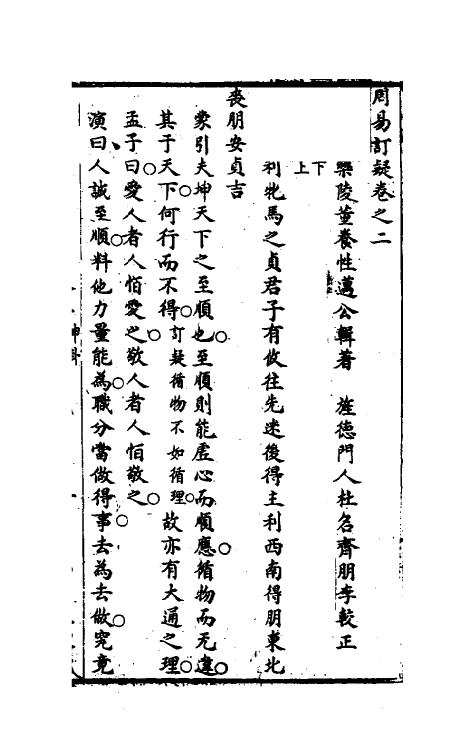 周易訂疑卷之二
樂陵董養性邁公輯著 旌德門人杜名齊朋李較正
下
上 利牝馬之貞君子有攸往先迷後得主利西南得朋東北
喪朋安貞吉
彖引夫坤天下之至順也至順則能虛心而順應循物而无違
其于天下何行而不得訂疑循物不如循理故亦有大通之理
孟子曰愛人者人恒愛之敬人者人恒敬之
演曰人誠至順料他力量能為職分當做得事去為去做究竟